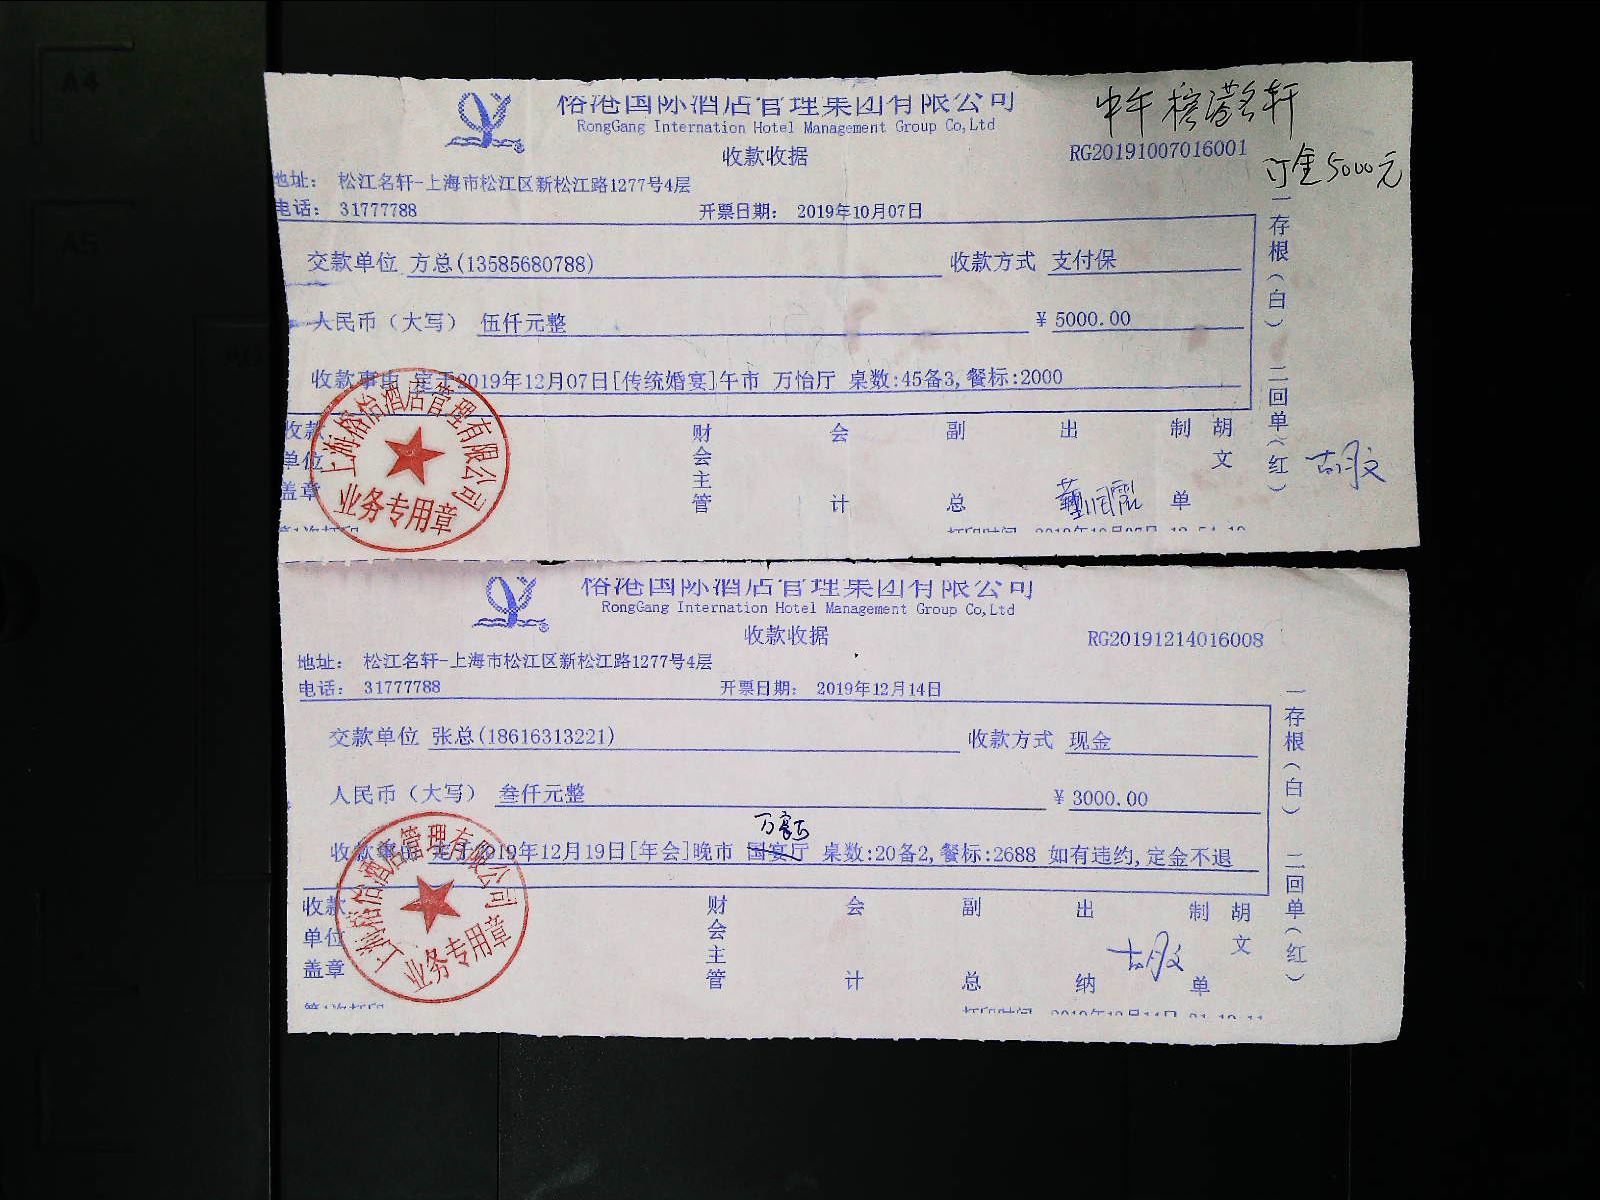 榕港国际酒店管理集团有限公司
RongGang Internation Hotel Management Group Co,Ltd
收款收据
中午 榕港名轩
RG20191007016001
订金5000元
地址： 松江名轩-上海市松江区新松江路1277号4层
电话： 31777788
开票日期： 2019年10月07日
交款单位 方总(13585680788)
收款方式 支付保
人民币（大写） 伍仟元整
¥ 5000.00
收款事由 定于2019年12月07日[传统婚宴]午市 万怡厅 桌数:45备3,餐标:2000
一存根（白） 二回单（红）
收款单位盖章
财会主管
会计
副总
出
制单
胡文
胡文
上海榕怡酒店管理有限公司
业务专用章
榕港国际酒店管理集团有限公司
RongGang Internation Hotel Management Group Co,Ltd
收款收据
RG20191214016008
地址： 松江名轩-上海市松江区新松江路1277号4层
电话： 31777788
开票日期： 2019年12月14日
交款单位 张总(18616313221)
收款方式 现金
人民币（大写） 叁仟元整
¥ 3000.00
万豪厅
收款事由 定于2019年12月19日[年会]晚市 国宴厅 桌数:20备2,餐标:2688 如有违约,定金不退
一存根（白） 二回单（红）
收款单位盖章
财会主管
会计
副总
出纳
胡文
制单
胡文
上海榕怡酒店管理有限公司
业务专用章